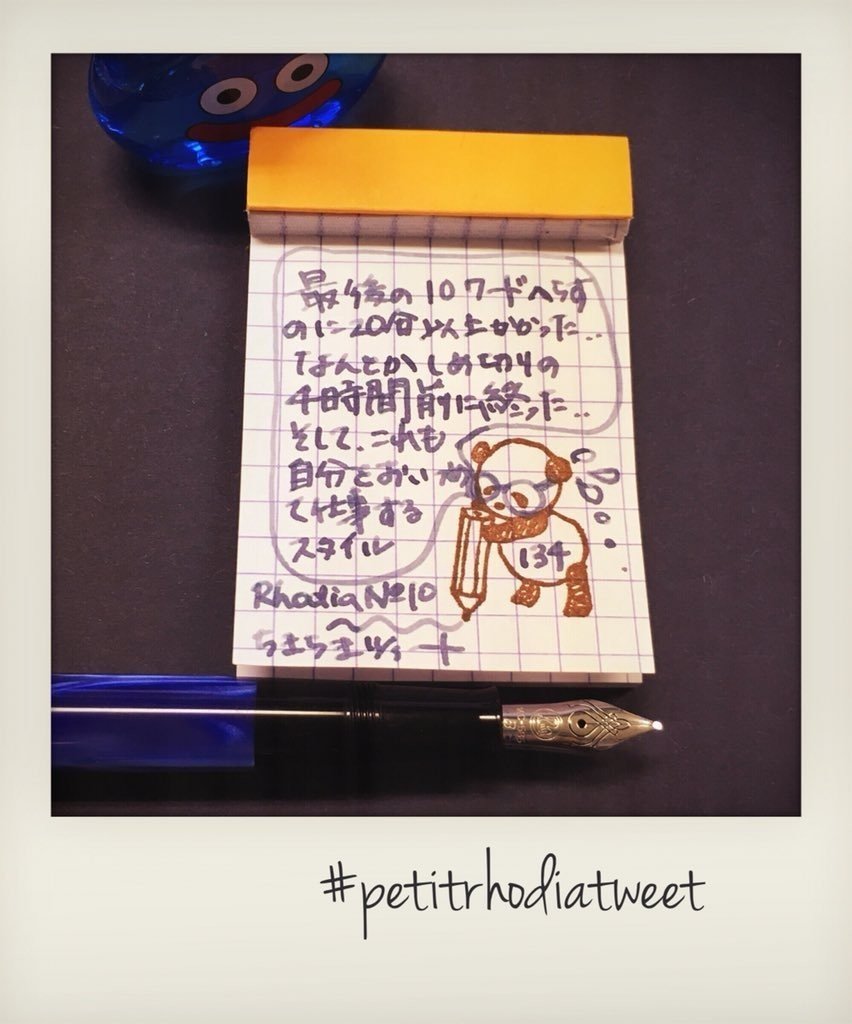 最後の10ワードへらす
のに20分以上かかった..
なんとかしめ切りの
4時間前に終った..
そして、これも
自分をおいか
て仕事する
スタイル
134
Rhodia №10
#petitrhodiatweet